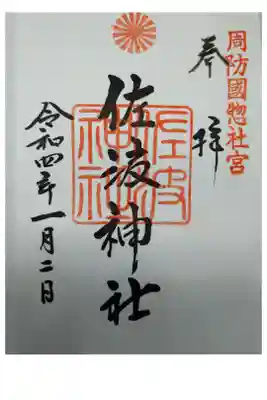 周防國惣社宮
奉拝
佐波神社
佐波神社
令和四年一月二日